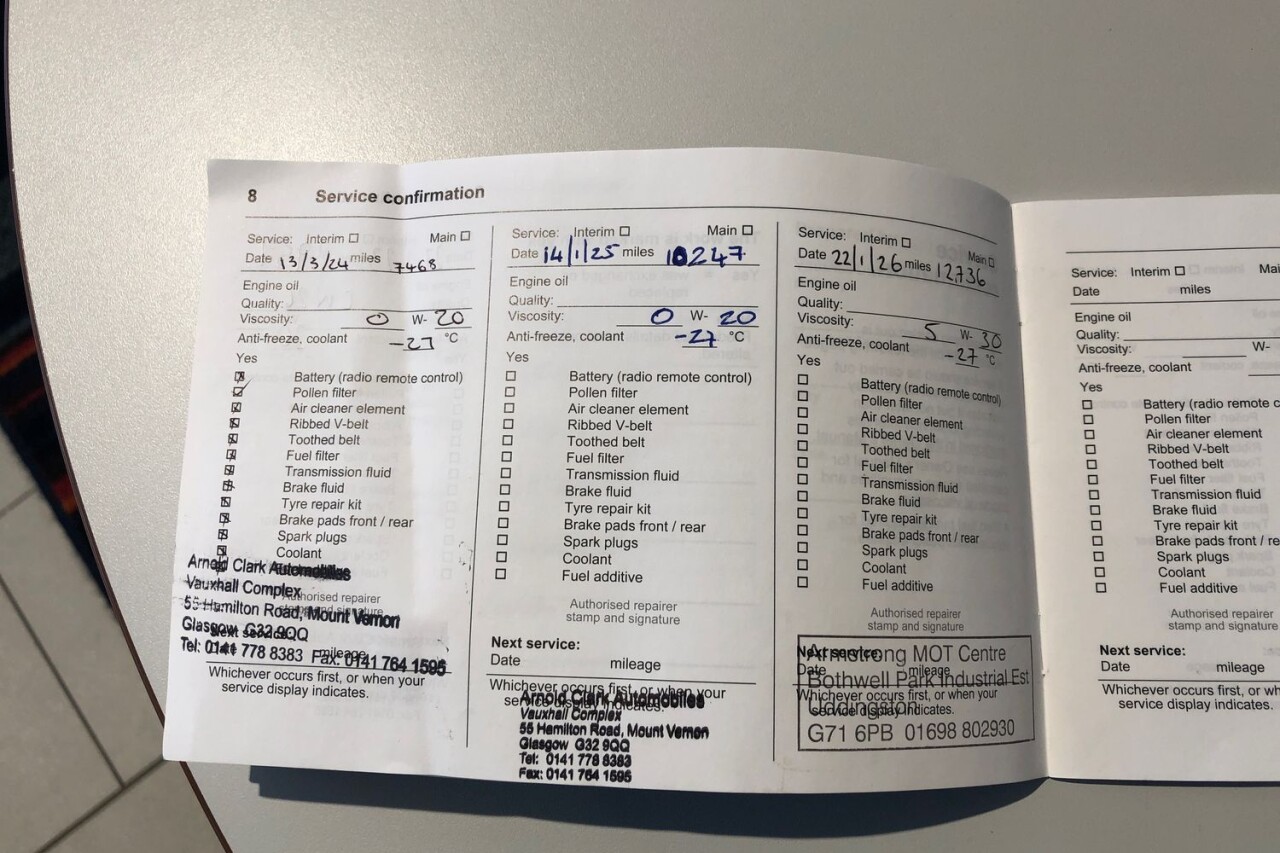 8 Service confirmation
Service: Interim ☐ Main ☐
Date 13/3/24 miles 7468
Engine oil
Quality:
Viscosity: 0 W- 20
Anti-freeze, coolant -27 °C
Yes
Battery (radio remote control)
Pollen filter
Air cleaner element
Ribbed V-belt
Toothed belt
Fuel filter
Transmission fluid
Brake fluid
Tyre repair kit
Brake pads front / rear
Spark plugs
Coolant
Arnold Clark Automobiles
Vauxhall Complex
Authorised repairer
stamp and signature
55 Hamilton Road, Mount Vernon
Glasgow G32 9QQ
Next service:
Tel: 0141 778 8383 Fax: 0141 764 1595
mileage
Whichever occurs first, or when your
service display indicates.
Service: Interim ☐ Main ☐
Date 14/1/25 miles 10247
Engine oil
Quality:
Viscosity: 0 W- 20
Anti-freeze, coolant -27 °C
Yes
Battery (radio remote control)
Pollen filter
Air cleaner element
Ribbed V-belt
Toothed belt
Fuel filter
Transmission fluid
Brake fluid
Tyre repair kit
Brake pads front / rear
Spark plugs
Coolant
Fuel additive
Authorised repairer
stamp and signature
Next service:
Date mileage
Whichever occurs first, or when your
service display indicates.
Arnold Clark Automobiles
Vauxhall Complex
55 Hamilton Road, Mount Vernon
Glasgow G32 9QQ
Tel: 0141 778 8383
Fax: 0141 764 1595
Service: Interim ☐ Main ☐
Date 22/1/26 miles 12736
Engine oil
Quality:
Viscosity: 5 W- 30
Anti-freeze, coolant -27 °C
Yes
Battery (radio remote control)
Pollen filter
Air cleaner element
Ribbed V-belt
Toothed belt
Fuel filter
Transmission fluid
Brake fluid
Tyre repair kit
Brake pads front / rear
Spark plugs
Coolant
Fuel additive
Authorised repairer
stamp and signature
Next service:
Date mileage
Whichever occurs first, or when your
service display indicates.
Armstrong MOT Centre
Bothwell Park Industrial Est
Uddingston
G71 6PB 01698 802930
Service: Interim ☐ Mai
Date miles
Engine oil
Quality:
Viscosity: W-
Anti-freeze, coolant
Yes
Battery (radio remote c
Pollen filter
Air cleaner element
Ribbed V-belt
Toothed belt
Fuel filter
Transmission fluid
Brake fluid
Tyre repair kit
Brake pads front / re
Spark plugs
Coolant
Fuel additive
Authorised repairer
stamp and signature
Next service:
Date mileage
Whichever occurs first, or wh
service display indicates.